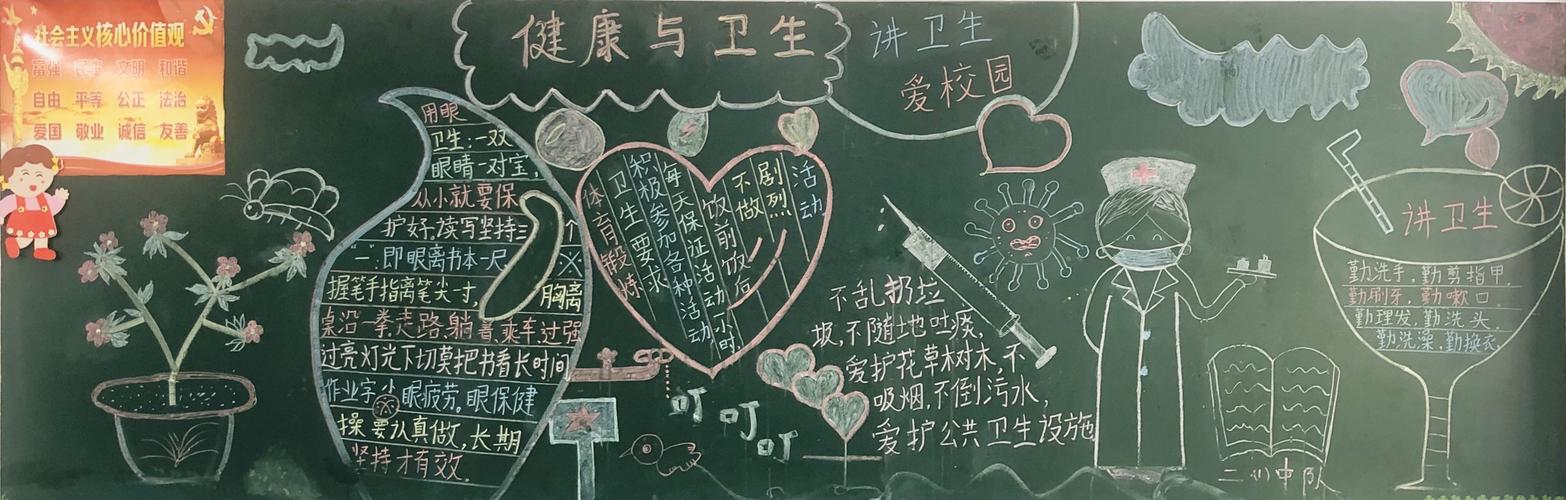 社会主义核心价值观
富强 民主 文明 和谐
自由 平等 公正 法治
爱国 敬业 诚信 友善
健康与卫生
讲卫生
爱校园
用眼
卫生:一双
眼睛一对宝,
从小就要保
护好,读写坚持三个
“一”:即眼离书本一尺
握笔手指离笔尖一寸,胸离
桌沿一拳走路、躺着、乘车、过强
过亮灯光下切莫把书看长时间
作业字小眼疲劳。眼保健
操要认真做,长期
坚持才有效.
体育锻炼
卫生要求
积极参加各种活动
每天保证活动一小时
饭前饭后
不做
剧烈
活动
叮
叮
叮
不乱扔垃
圾,不随地吐痰,
爱护花草树木,不
吸烟,不倒污水,
爱护公共卫生设施
讲卫生
勤洗手,勤剪指甲,
勤刷牙,勤嗽口,
勤理发,勤洗头,
勤洗澡,勤换衣.
二(1)中队